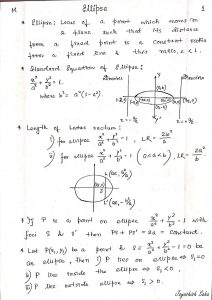 M Ellipse 1
* Ellipse: Locus of a point which moves on
a plane such that its distance
from a fixed point is a constant ratio
from a fixed line & that ratio, e < 1.
* Standard Equation of Ellipse:
x²/a² + y²/b² = 1.
where b² = a²(1-e²).
Directrix
Directrix
* Length of Latus rectum:
i) for ellipse x²/a² + y²/b² = 1, LR = 2b²/a
ii) for ellipse x²/a² + y²/b² = 1 (a<b), LR = 2a²/b
* If P is a point on ellipse x²/a² + y²/b² = 1 with
foci S & S' then PS + PS' = 2a = Constant.
* Let P(x₁,y₁) be a point & S ≡ x²/a² + y²/b² - 1 = 0 be
an ellipse, then i) P lies on ellipse ⇔ S₁ = 0
ii) P lies inside the ellipse ⇔ S₁ < 0,
iii) P lies outside ellipse ⇔ S₁ > 0.
Jayashish Saha